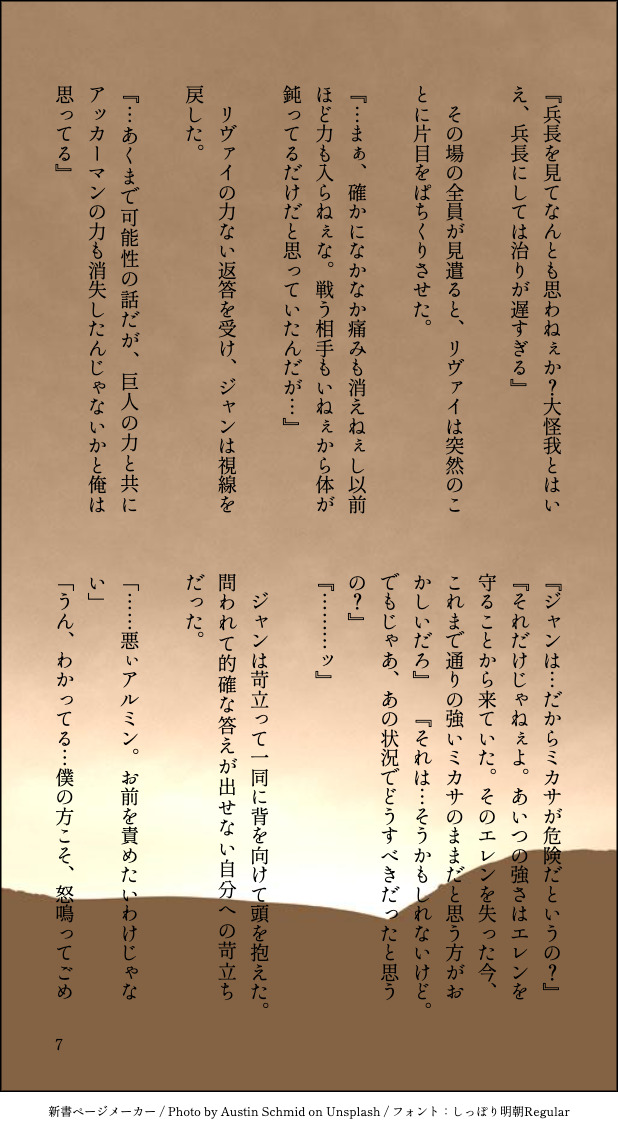 『兵長を見てなんとも思わねぇか？大怪我とはい
え、兵長にしては治りが遅すぎる』
その場の全員が見遣ると、リヴァイは突然のこ
とに片目をぱちくりさせた。
『…まぁ、確かになかなか痛みも消えねぇし以前
ほど力も入らねぇな。戦う相手もいねぇから体が
鈍ってるだけだと思っていたんだが…』
リヴァイの力ない返答を受け、ジャンは視線を
戻した。
『…あくまで可能性の話だが、巨人の力と共に
アッカーマンの力も消失したんじゃないかと俺は
思ってる』
『ジャンは…だからミカサが危険だというの？』
『それだけじゃねぇよ。あいつの強さはエレンを
守ることから来ていた。そのエレンを失った今、
これまで通りの強いミカサのままだと思う方がお
かしいだろ』『それは…そうかもしれないけど。
でもじゃあ、あの状況でどうすべきだったと思う
の？』
『………ッ』
ジャンは苛立って一同に背を向けて頭を抱えた。
問われて的確な答えが出せない自分への苛立ち
だった。
「……悪ぃアルミン。お前を責めたいわけじゃな
い」
「うん、わかってる…僕の方こそ、怒鳴ってごめ
7
新書ページメーカー / Photo by Austin Schmid on Unsplash / フォント：しっぽり明朝Regular